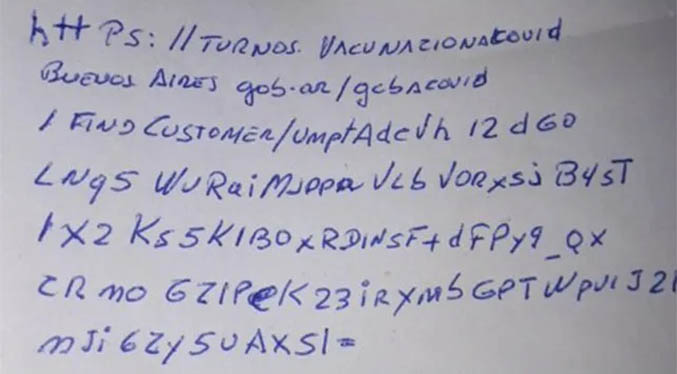 httPs: //TURNOS. VACUNACIONACOVID
BUENOS AIRES gob.ar/gcbACOVID
/ FIND CUSTOMER/UmptAdeVh 12 dGO
LNq5 WURaiMJppa VLb VORxsj B4sT
1X2 Ks5K1BOxRDiNsF+dFPy9_Qx
ZR mo GZ1PeK23iRXMbGPTWpVIJ21
mJi6Zy5UAXS1=